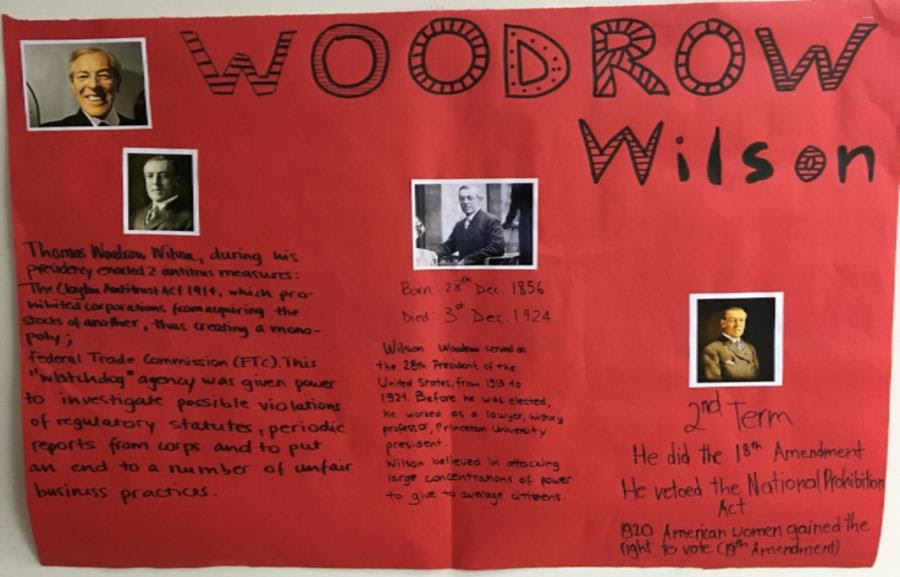 WOODROW
Wilson
Thomas Woodrow Wilson, during his
presidency enacted 2 antitrus measures:
The Clayton Antitrust Act 1914, which pro-
hibited corporations from acquiring the
stocks of another, thus creating a mono-
poly;
Federal Trade Commission (FTC). This
"watchdog" agency was given power
to investigate possible violations
of regulatory statutes, periodic
reports from corps and to put
an end to a number of unfair
business practices.
Born: 28th Dec. 1856
Died: 3rd Dec. 1924
Wilson Woodrow served as
the 28th President of the
United States, from 1913 to
1921. Before he was elected,
he worked as a lawyer, history
professor, Princeton University
president.
Wilson believed in attacking
large concentrations of power
to give to average citizens.
2nd Term
He did the 18th Amendment
He vetoed the National Prohibition
Act
1920 American women gained the
right to vote (19th Amendment)